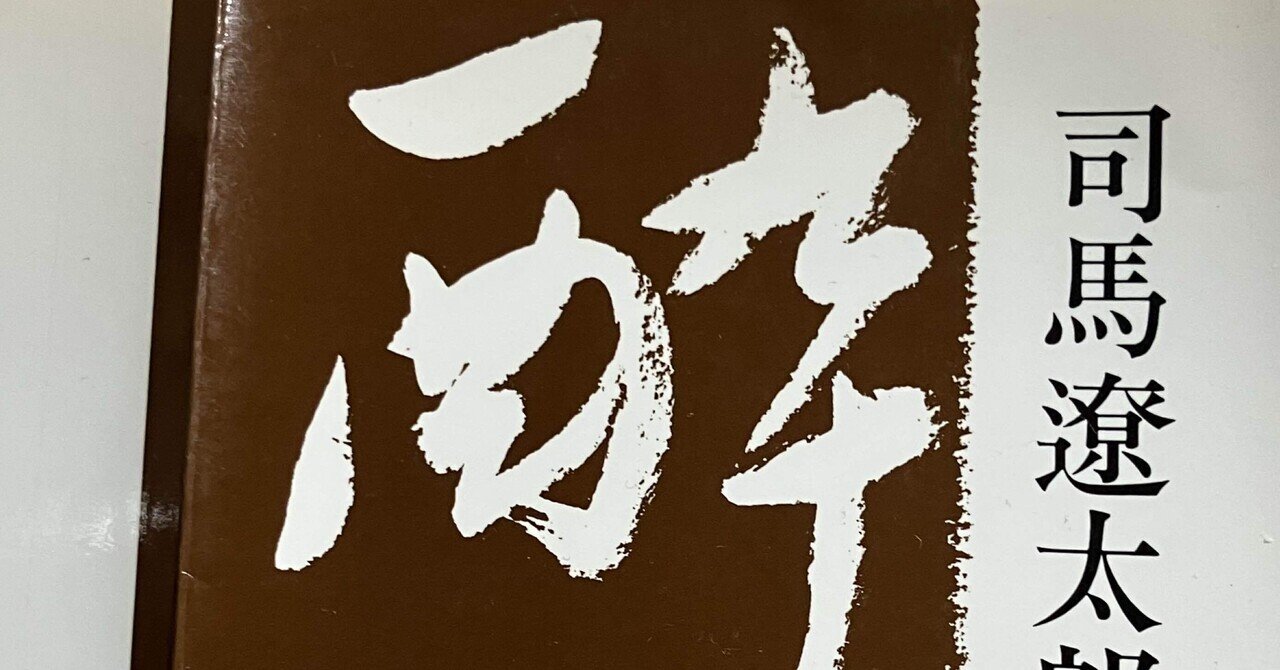 司馬遼太郎
酔